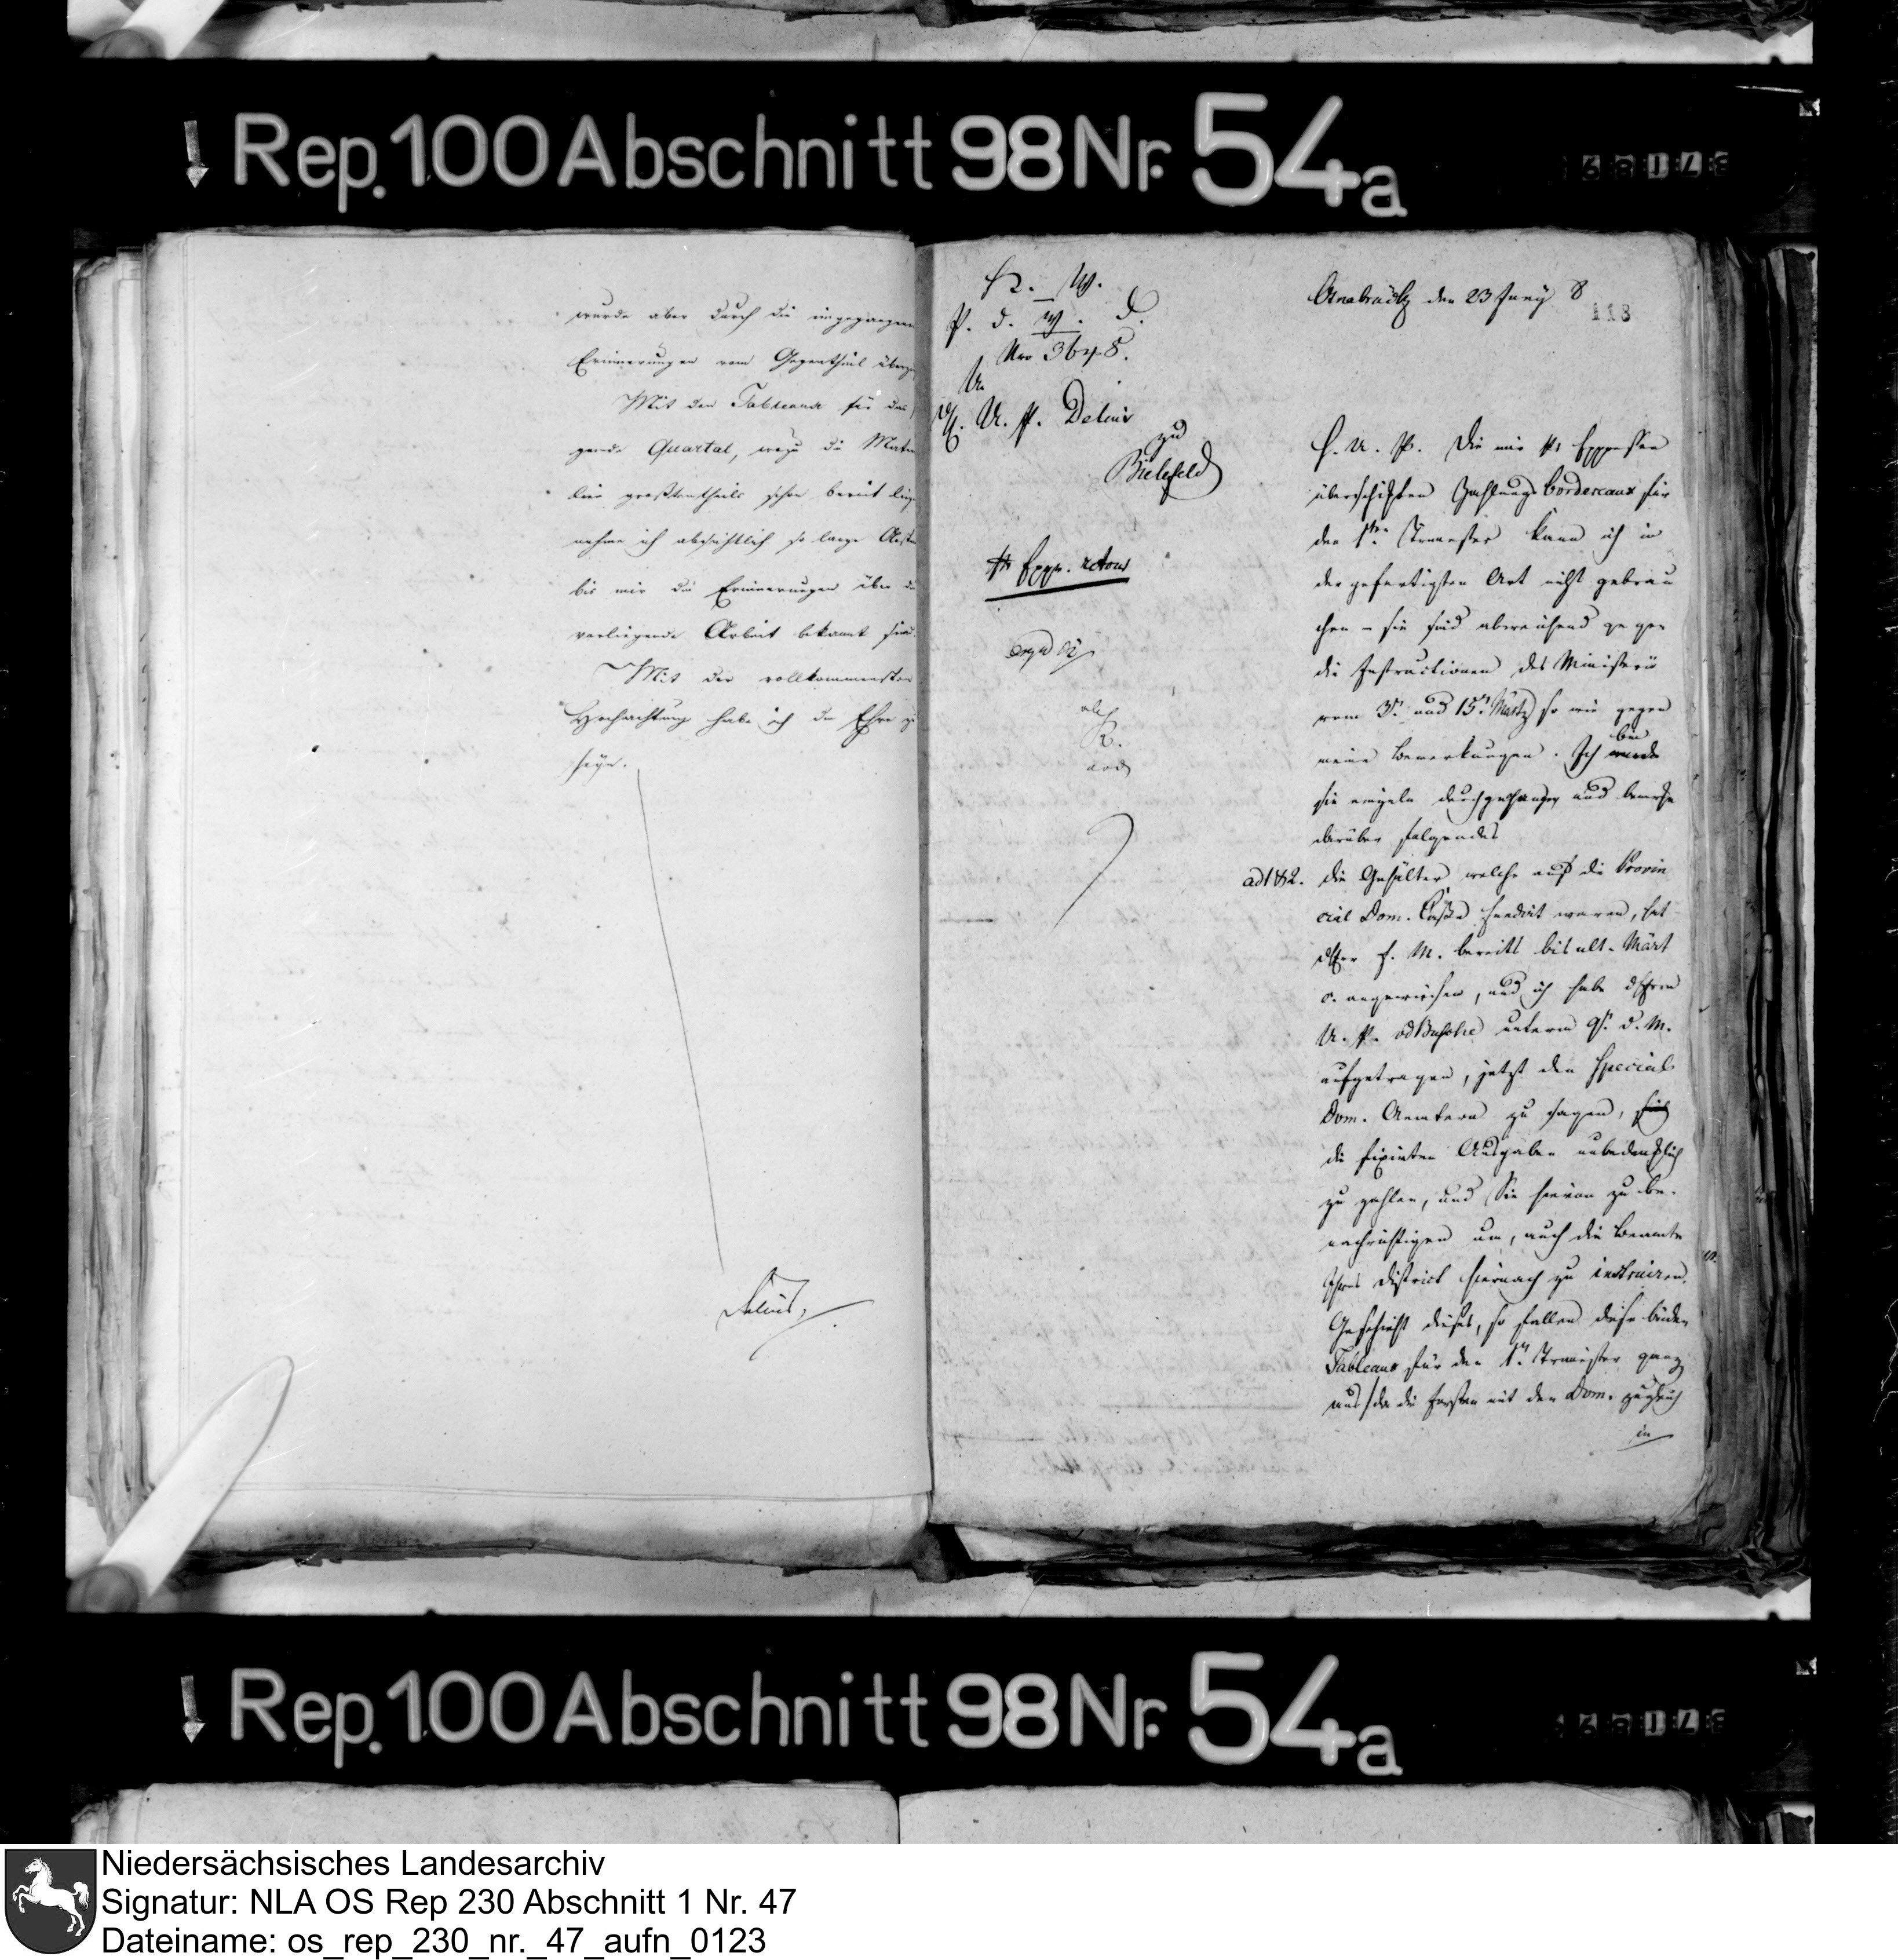 Rep. 100 Abschnitt 98 Nr. 54a
wurde aber durch die eingegangenen
Erinnerungen vom Gegentheil
Mit den Tableaux für das
gende Quartal, wozu die Mate
lien großtentheils schon bereit
nehme ich absichtlich so lange
bis mir die Erinnerungen über
vorliegende Arbeit bekannt sind.
Mit der vollkommensten
Hochachtung habe ich die Ehre zu
seyn.
Delius.
K. W.
P. d. W. D.
Nro 3648.
An
U. P. Delius
zu
Bielefeld
Osnabrück den 23 Juny 8
118
H. U. P. Die mir
überschickten Zahlungs bordereaux für
den 1sten Trimester kann ich in
der gefertigten Art nicht gebrau
chen – sie sind abweichend gegen
die Instructionen des Ministerii
vom 3n und 15n Märtz so wie gegen
meine Bemerkungen. Ich
bin
sie einzeln durchgegangen und bemerke
darüber folgendes
ad 1 & 2. die Gehälter welche auf die Provin
cial Dom. Casse fundirt waren, hat
der F. M. bereits bis ult. Märt
c. angewiesen, und ich habe
U. P. unterm 9n d. M.
aufgetragen, jetzt den Special
Dom. Aemtern zu sagen,
die fixirten Ausgaben unbedenklich
zu zahlen, und Sie hievon zu be-
nachrichtigen um, auch die Beamte
Ihres District hiernach zu instruiren.
Geschieht dieses, so fallen diese beiden
Tableaux für den 1n Trimester ganz
aus / da die Forsten mit den Dom. zugleich
in
Rep. 100 Abschnitt 98 Nr. 54a
Niedersächsisches Landesarchiv
Signatur: NLA OS Rep 230 Abschnitt 1 Nr. 47
Dateiname: os_rep_230_nr._47_aufn_0123